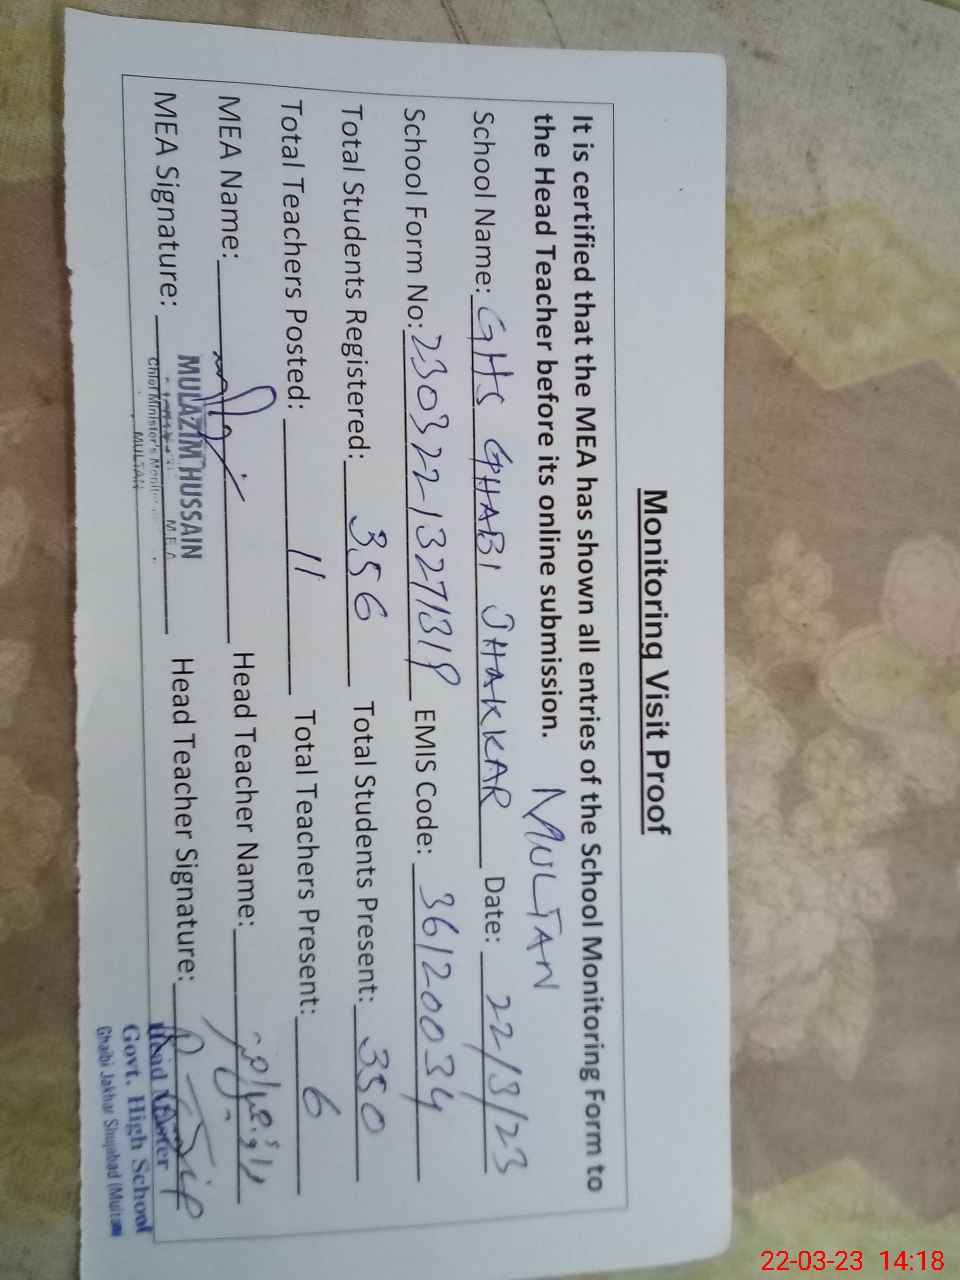 Monitoring Visit Proof
It is certified that the MEA has shown all entries of the School Monitoring Form to
the Head Teacher before its online submission. MULTAN
School Name: GHS GHABI JHAKKAR Date: 22/3/23
School Form No: EMIS Code: 36120034
Total Students Registered: 356 Total Students Present: 350
Total Teachers Posted: 11 Total Teachers Present: 6
MEA Name: Head Teacher Name:
MEA Signature: Head Teacher Signature:
MULAZIM HUSSAIN
M.E.A
Chief Minister's
MULTAN
Head Master
Govt. High School
Ghaibi Jakhar Shujabad (Multan
22-03-23 14:18